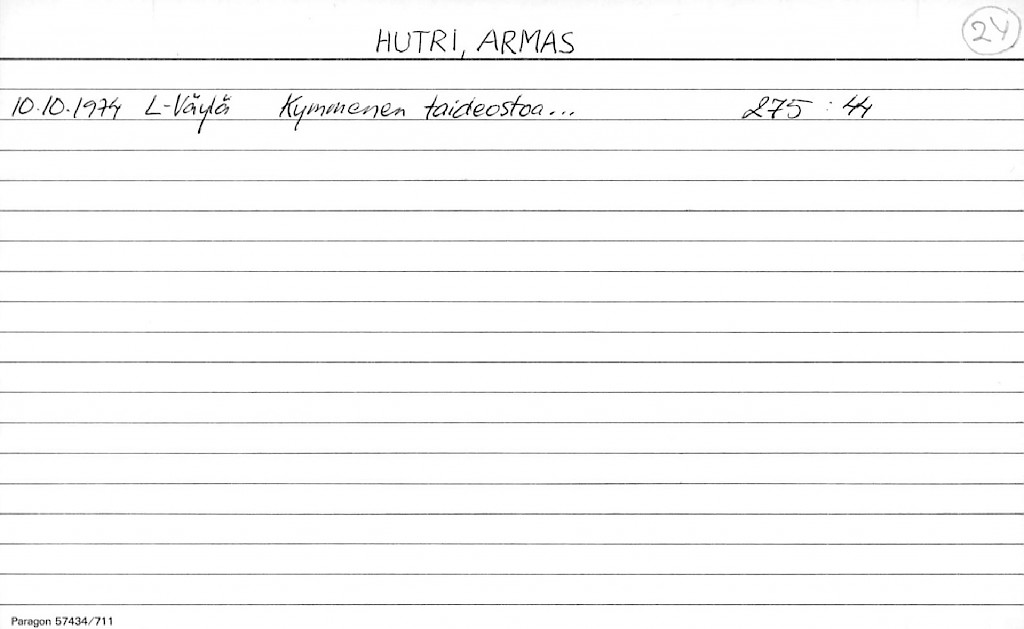 HUTRI, ARMAS
24
10.10.1974 L-Väylä Kymmenen taideostoa... 275 : 44
Paragon 57434/711